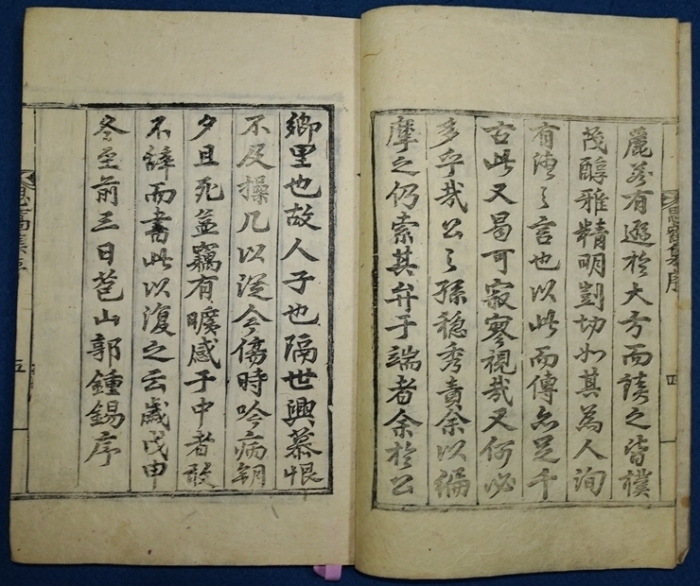 麗若有遜於大方而讀之皆樸
茂醇雅精明剴切如其為人洵
有德之言也以此而傳亦足千
古此又曷可寂寥視哉又何必
多乎哉公之孫穏秀責余以編
摩之仍索其弁于端者余於公
四
鄉里也故人子也隔世興慕恨
不及操几以從今傷時吟病朝
夕且死益竊有曠感于中者敢
不辭而書此以復之云歲戊申
冬至前三日苞山郭鍾錫序
五